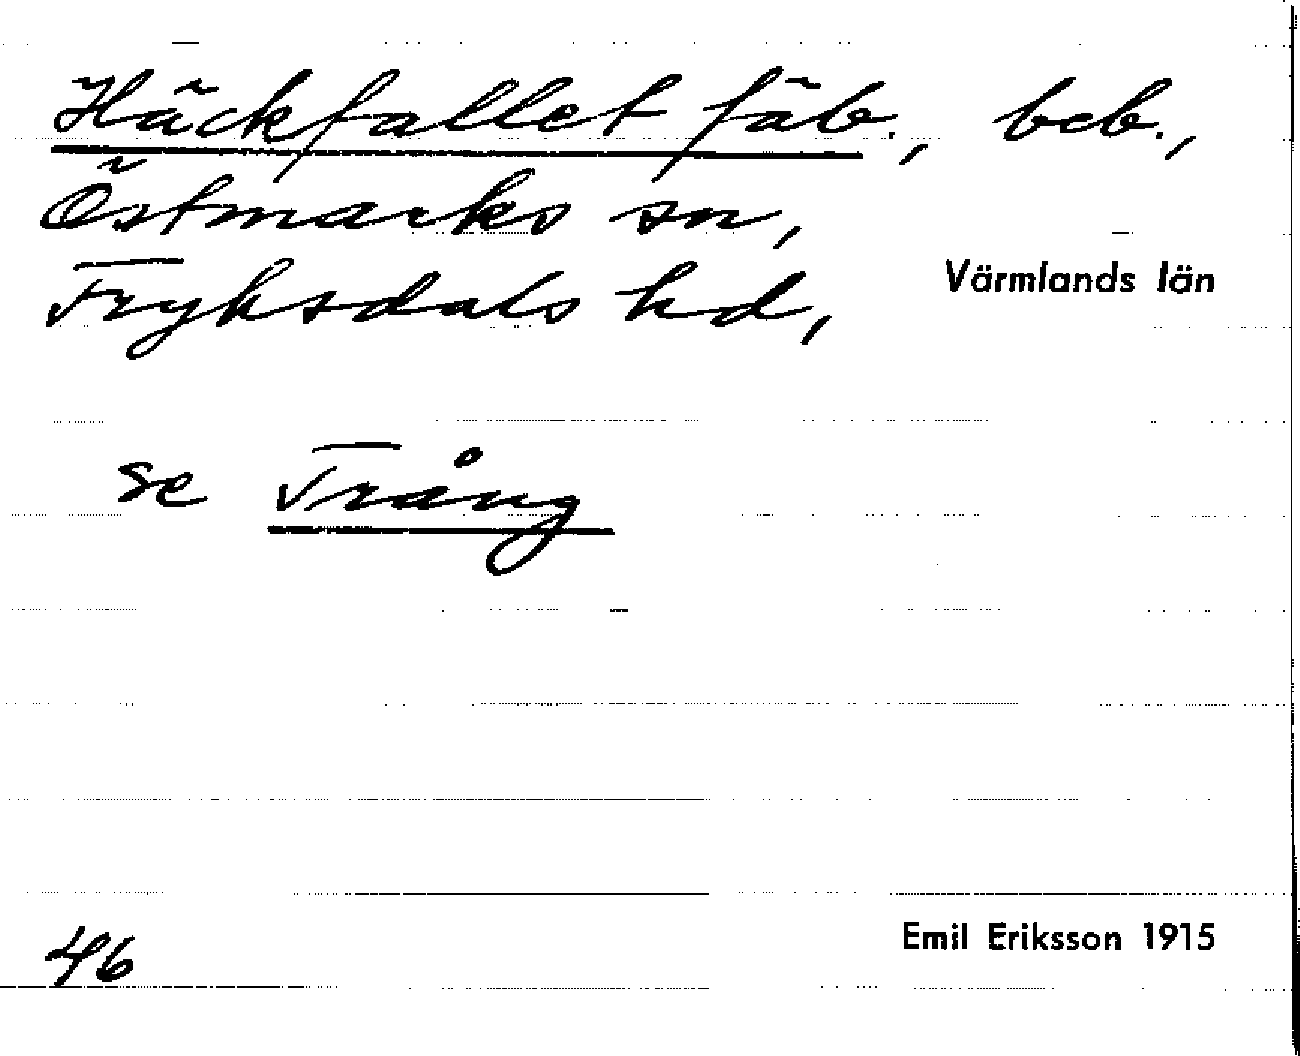 Häckfallet fäb., beb.,
Östmarks sn,
Fryksdals hd,
Värmlands län
se Trång
46
Emil Eriksson 1915